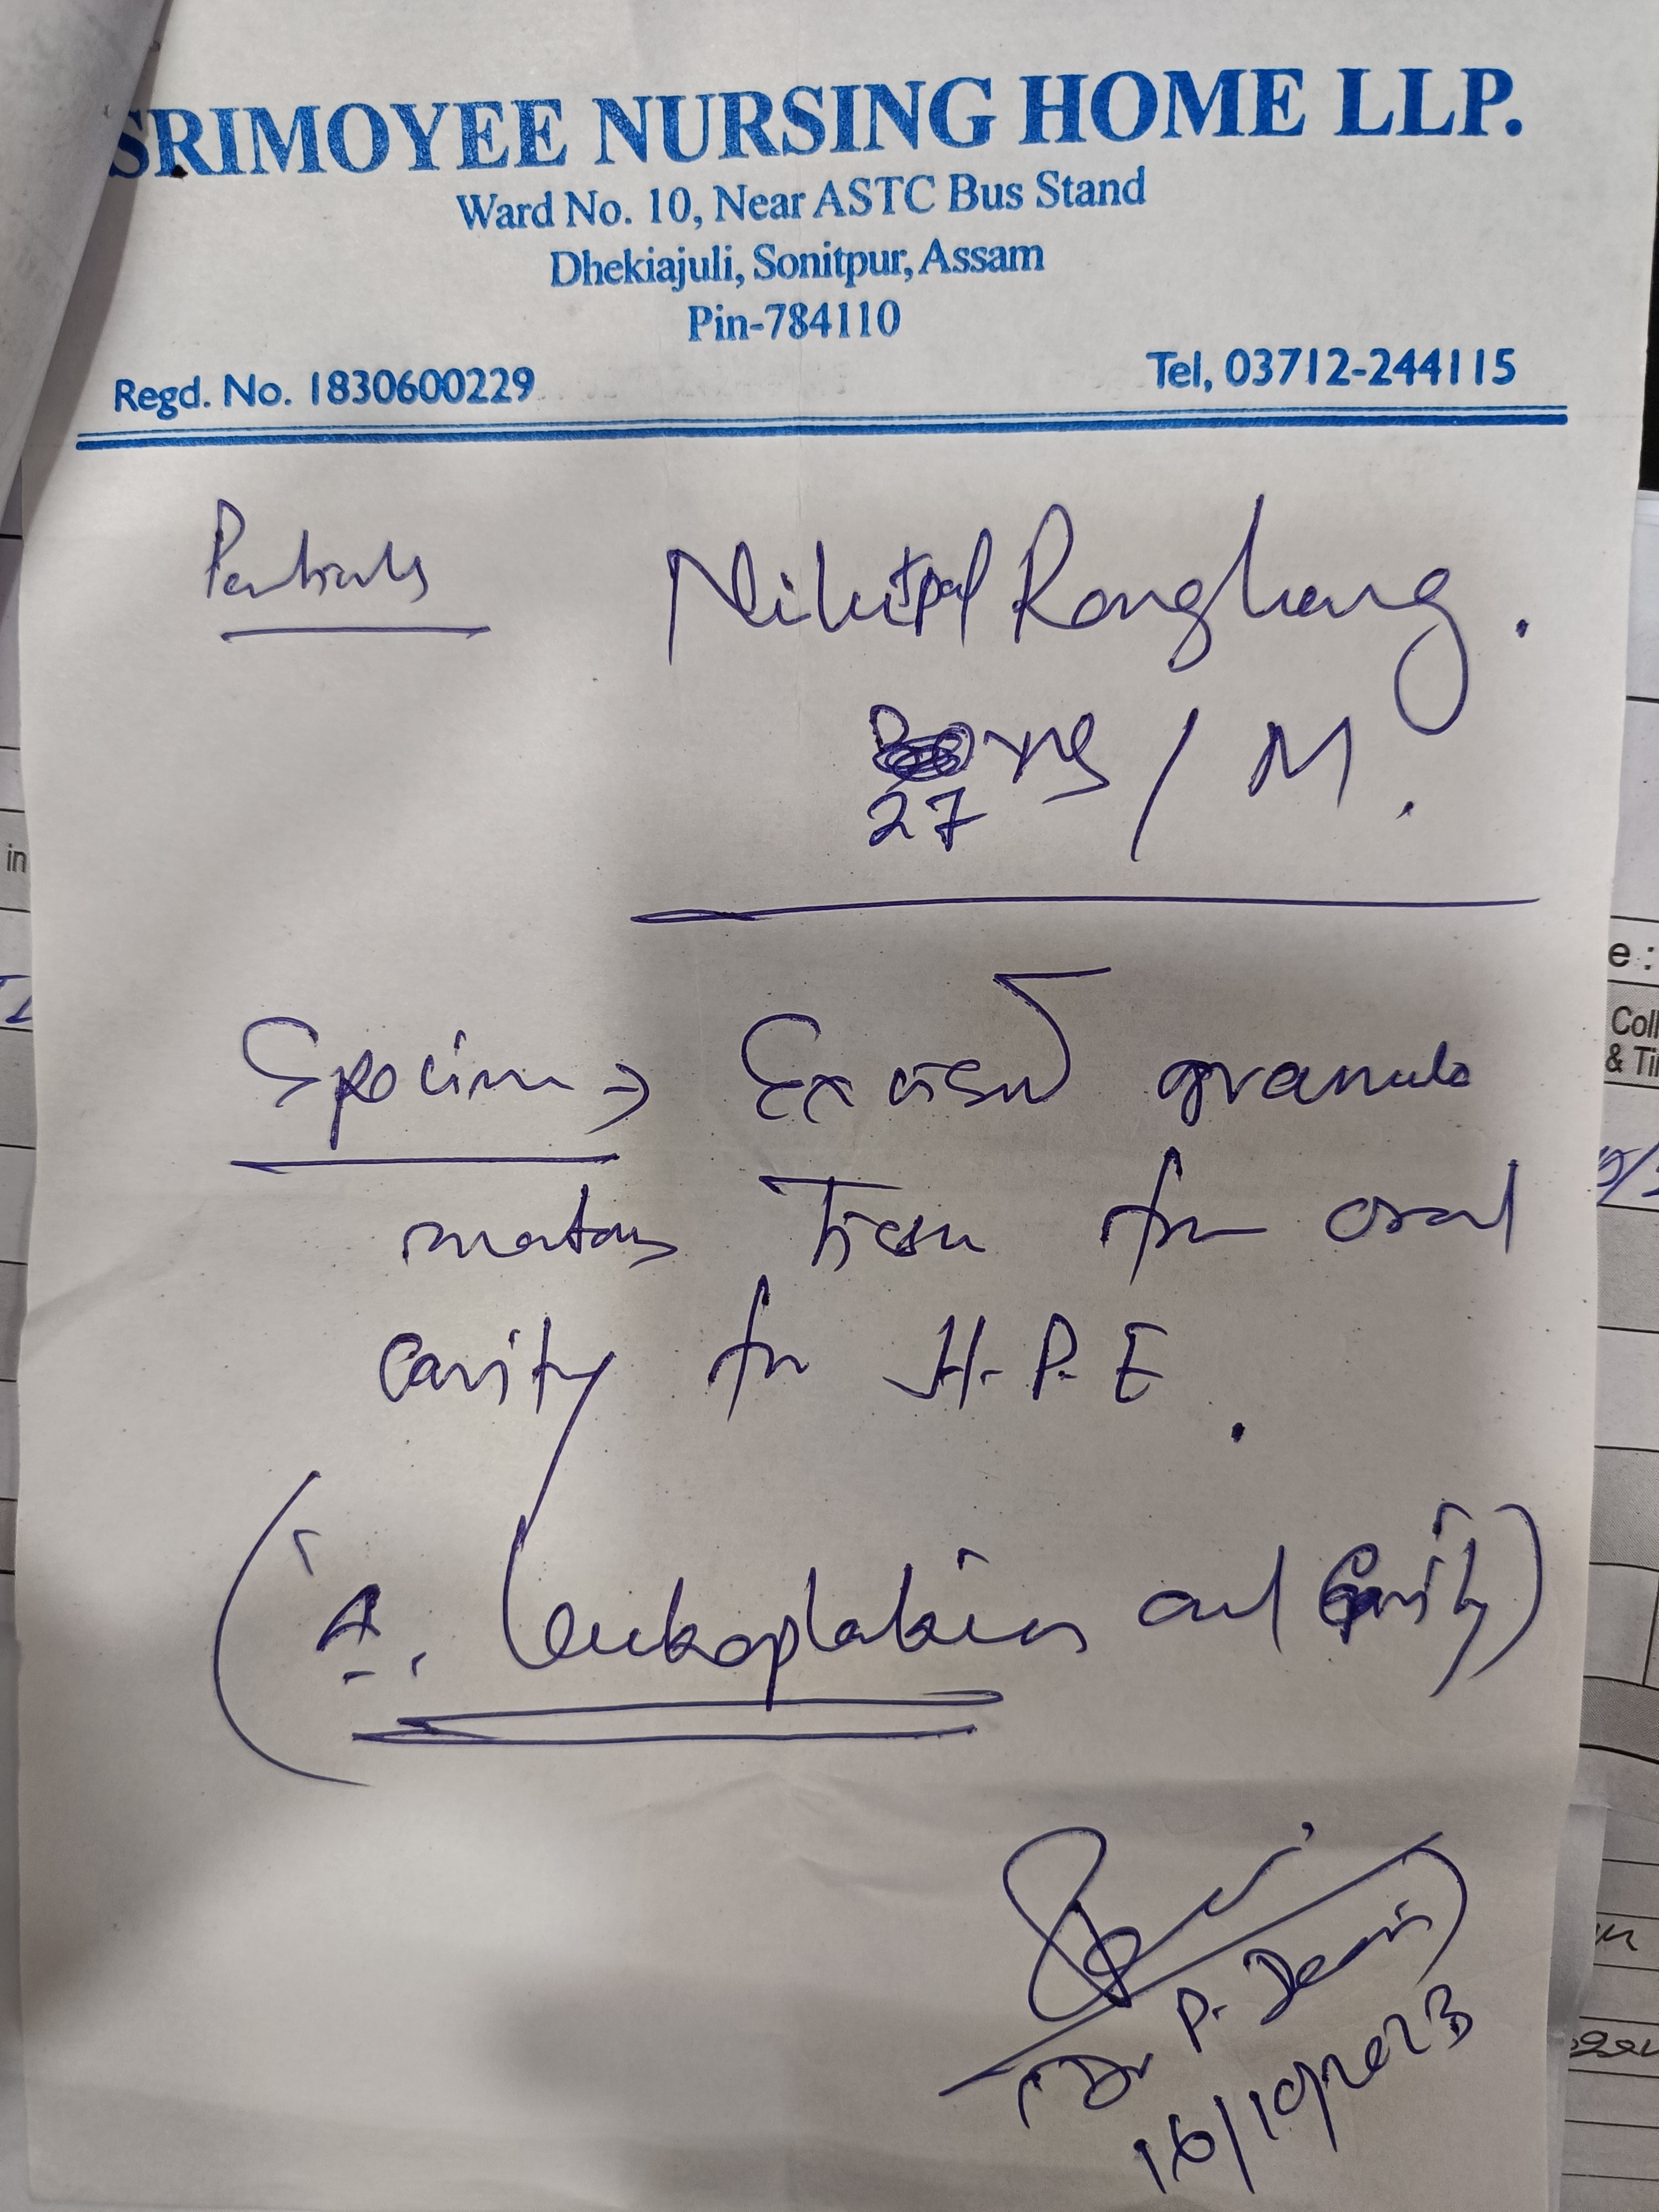 SRIMOYEE NURSING HOME LLP.
Ward No. 10, Near ASTC Bus Stand
Dhekiajuli, Sonitpur, Assam
Pin-784110
Regd. No. 1830600229 Tel, 03712-244115
Ronghang.
yrs / M.
27
Specimen → Excised granulo
matous Tissue from oral
Cavity for H.P.E.
( Leukoplakia oral Cavity)
Dr P.
16/10/2023
in
e :
Coll
& Ti